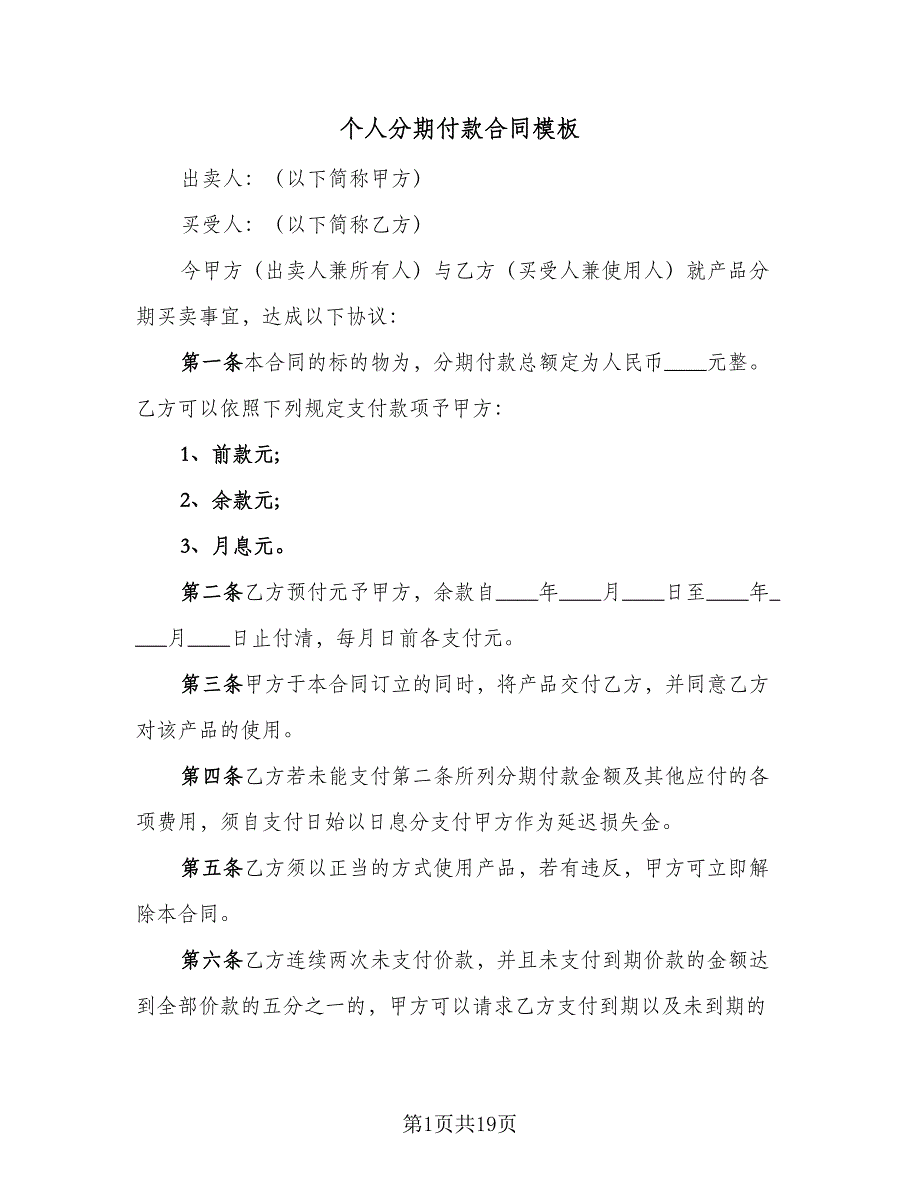 个人分期付款合同模板
出卖人：（以下简称甲方）
买受人：（以下简称乙方）
今甲方（出卖人兼所有人）与乙方（买受人兼使用人）就产品分
期买卖事宜，达成以下协议：
第一条本合同的标的物为，分期付款总额定为人民币____元整。
乙方可以依照下列规定支付款项予甲方：
1、前款元;
2、余款元;
3、月息元。
第二条乙方预付元予甲方，余款自____年____月____日至____年_
___月____日止付清，每月日前各支付元。
第三条甲方于本合同订立的同时，将产品交付乙方，并同意乙方
对该产品的使用。
第四条乙方若未能支付第二条所列分期付款金额及其他应付的各
项费用，须自支付日始以日息分支付甲方作为延迟损失金。
第五条乙方须以正当的方式使用产品，若有违反，甲方可立即解
除本合同。
第六条乙方连续两次未支付价款，并且未支付到期价款的金额达
到全部价款的五分之一的，甲方可以请求乙方支付到期以及未到期的
第1页共19页